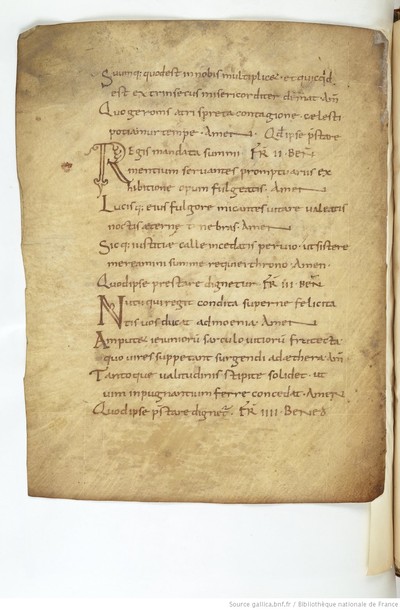 Suumq; quod est in nobis multiplicet· et quicq'd
est extrinsecus misericorditer demat· Am
Quo geronis atri spreta contagione celesti
potiamur tempe· Amen· Qd ipse p̄stare
Regis mandata summi FR̄ II BEN̄
mentium servantes promptuarius ex
hibitione opum fulgeatis· Amen
Lucisq; eius fulgore micantes vitare valeatis
noctis aeternę tenebras· Amen
Sicq; iustitiae calle incedatis pervio· ut sistere
mereamini summe requier throno· Amen·
Quod ipse prestare dignetur FR̄ III BEN̄
Nutu qui regit condita superne felicita
tis vos ducat ad moenia· Amen
Amputet ieiuniorū sarculo vitiorū frutecta
quo vires suppetant surgendi ad aethera· Am̄
Tantoque valitudinis stipite solidet· ut
vim inpugnantium ferre concedat· Amen
Quod ipse p̄stare dignet̄· FR̄ IIII BENED
Source gallica.bnf.fr / Bibliothèque nationale de France